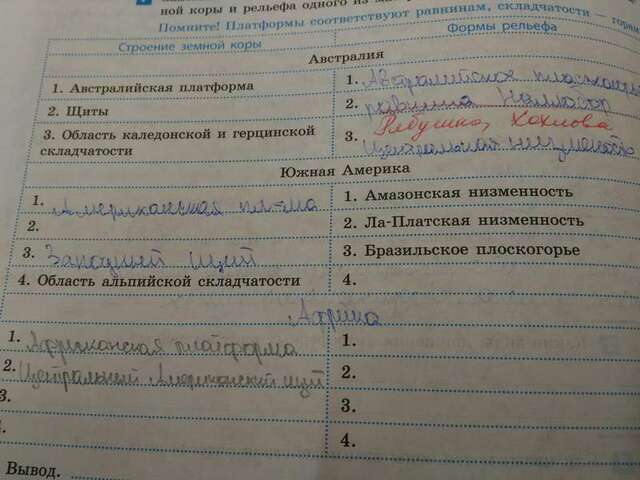 ной коры и рельефа одного из
Помните! Платформы соответствуют равнинам, складчатости — горам
Строение земной коры
Формы рельефа
Австралия
1. Австралийская платформа
1. Австралийское
2. Щиты
2. равнина Налларбор
3. Область каледонской и герцинской складчатости
3. Рябушко, Хохлова
Центральная низменность
Южная Америка
1. Американская пл-ма
1. Амазонская низменность
2.
2. Ла-Платская низменность
3. Западный щит
3. Бразильское плоскогорье
4. Область альпийской складчатости
4.
Африка
1. Африканская платформа
1.
2. Центральный Африканский щит
2.
3.
3.
4.
Вывод.